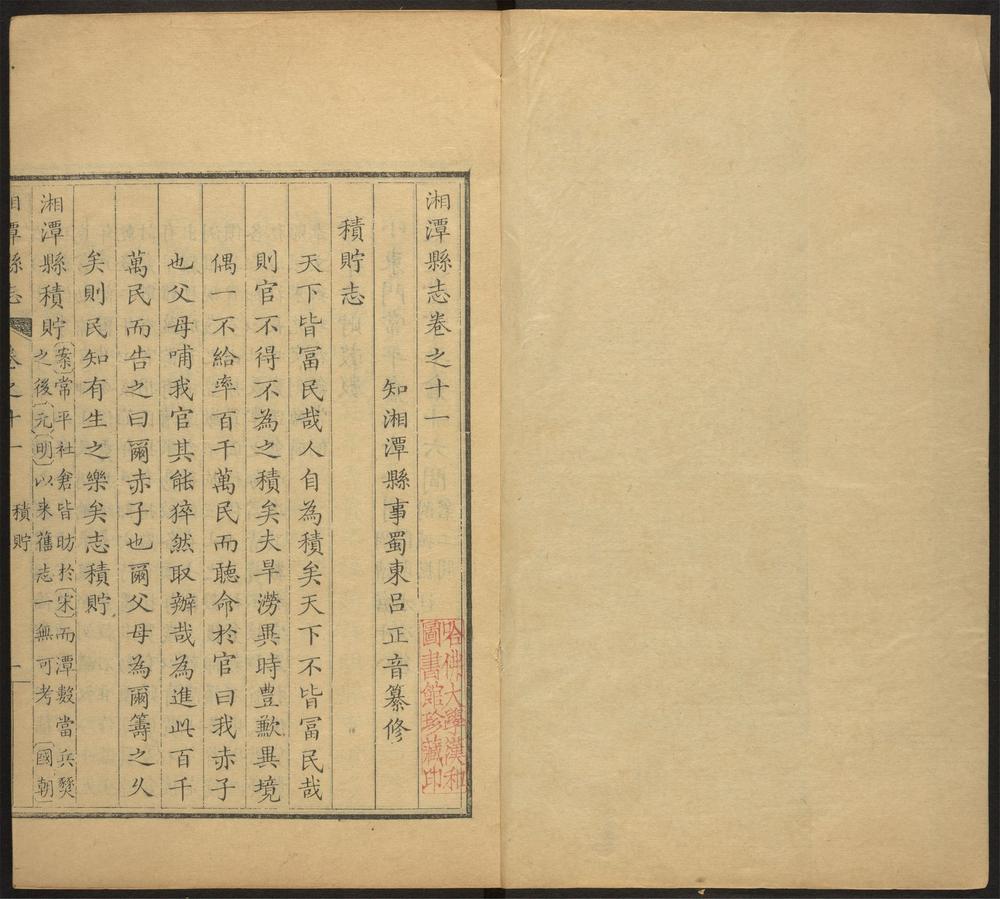 湘潭縣志卷之十一
知湘潭縣事蜀東呂正音纂修
積貯志
天下皆冨民哉人自為積矣天下不皆冨民哉
則官不得不為之積矣夫旱澇異時豊歉異境
偶一不給率百千萬民而聽命於官曰我赤子
也父母哺我官其能猝然取辦哉為進此百千
萬民而告之曰爾赤子也爾父母為爾籌之久
矣則民知有生之樂矣志積貯
湘潭縣積貯
案常平社倉皆昉於宋而潭數當兵燹
之後元明以来舊志一無可考國朝
湘潭縣志 卷之十一 積貯 一
哈佛大學漢和
圖書館珍藏印